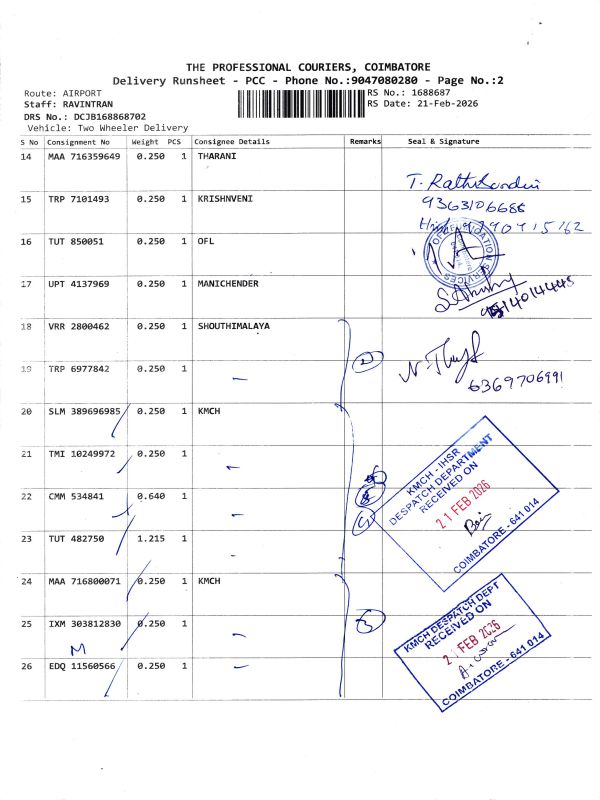 THE PROFESSIONAL COURIERS, COIMBATORE
Delivery Runsheet - PCC - Phone No.:9047080280 - Page No.:2
Route: AIRPORT RS No.: 1688687
Staff: RAVINTRAN RS Date: 21-Feb-2026
DRS No.: DCJB168868702
Vehicle: Two Wheeler Delivery
S No Consignment No Weight PCS Consignee Details Remarks Seal & Signature
14 MAA 716359649 0.250 1 THARANI
15 TRP 7101493 0.250 1 KRISHNVENI
9363106686
16 TUT 850051 0.250 1 OFL
17 UPT 4137969 0.250 1 MANICHENDER
18 VRR 2800462 0.250 1 SHOUTHIMALAYA
19 TRP 6977842 0.250 1 —
6369706991
20 SLM 389696985 0.250 1 KMCH
21 TMI 10249972 0.250 1 —
22 CMM 534841 0.640 1 —
23 TUT 482750 1.215 1 —
KMCH - IHSR
DESPATCH DEPARTMENT
RECEIVED ON
21 FEB 2026
COIMBATORE - 641 014
24 MAA 716800071 0.250 1 KMCH
25 IXM 303812830 0.250 1 —
M
26 EDQ 11560566 0.250 1 —
KMCH DESPATCH DEPT
RECEIVED ON
21 FEB 2026
COIMBATORE - 641 014